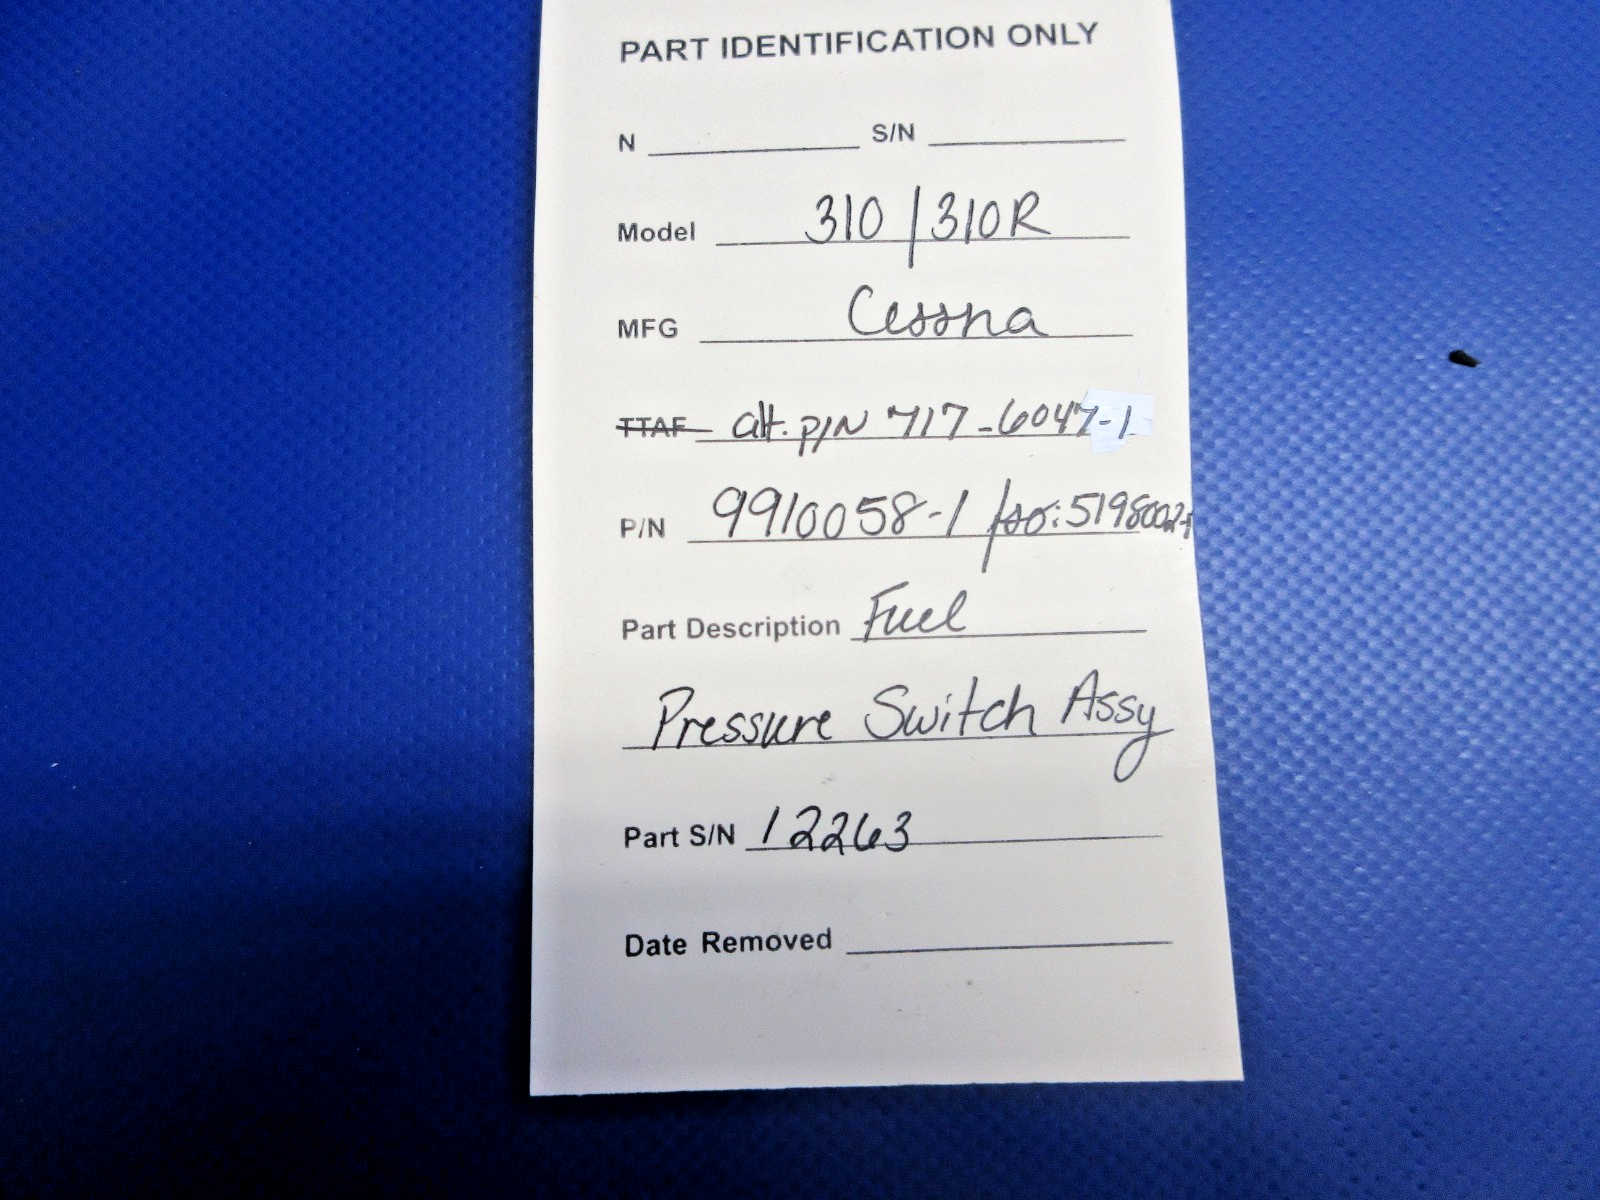 PART IDENTIFICATION ONLY
N S/N
Model 310 / 310R
MFG Cessna
TTAF alt. P/N 717-6047-1
P/N 9910058-1 / so: 5198002-1
Part Description Fuel
Pressure Switch Assy
Part S/N 12263
Date Removed